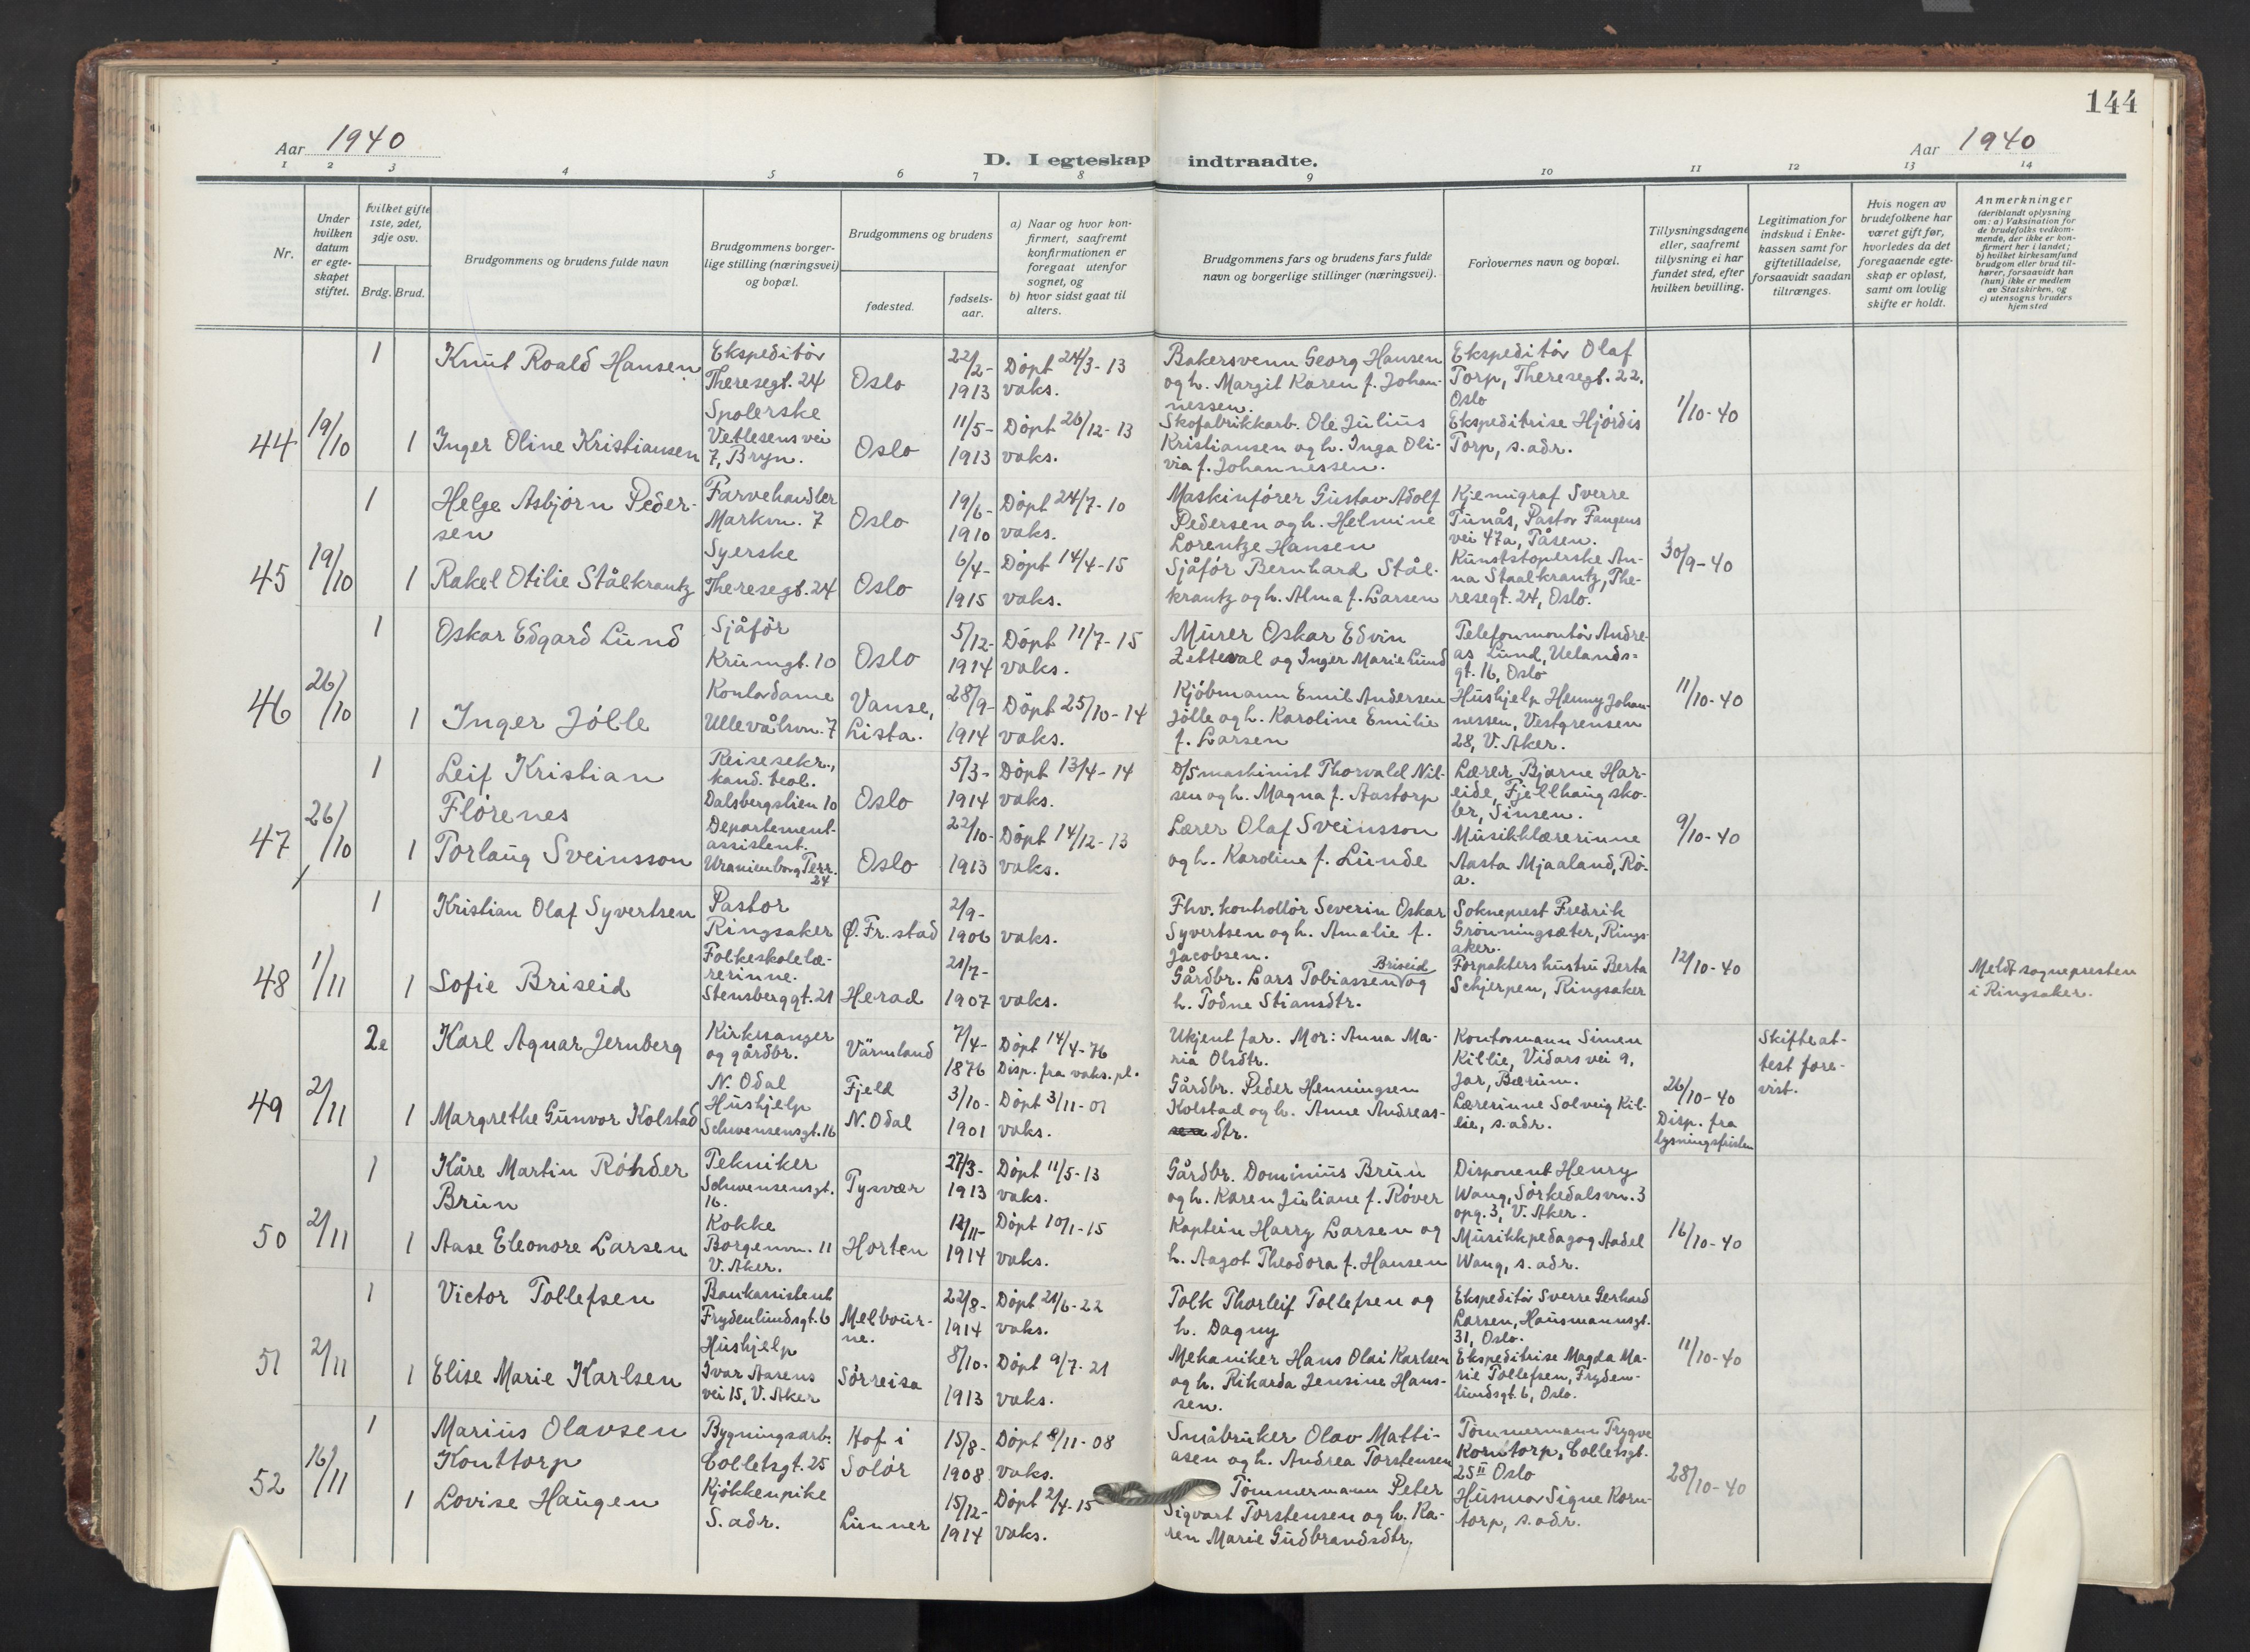 144
Aar 1940
Aar 1940
D. I egteskap indtraadte.
1 2 3 4 5 6 7 8 9 10 11 12 13 14
Nr.
Under
hvilken
datum
er egte-
skapet
stiftet.
hvilket gifte
1ste, 2det,
3dje osv.
Brdg. Brud.
Brudgommens og brudens fulde navn
Brudgommens borger-
lige stilling (næringsvei)
og bopæl.
Brudgommens og brudens
fødested.
fødsels-
aar.
a) Naar og hvor kon-
firmert, saafremt
konfirmationen er
foregaat utenfor
sognet, og
b) hvor sidst gaat til
alters.
Brudgommens fars og brudens fars fulde
navn og borgerlige stillinger (næringsvei).
Forlovernes navn og bopæl.
Tillysningsdagene
eller, saafremt
tillysning ei har
fundet sted, efter
hvilken bevilling.
Legitimation for
indskud i Enke-
kassen samt for
giftetilladelse,
forsaavidt saadan
tiltrænges.
Hvis nogen av
brudefolkene har
været gift før,
hvorledes da det
foregaaende egte-
skap er opløst,
samt om lovlig
skifte er holdt.
Anmerkninger
(deriblandt oplysning
om: a) Vaksination for
de brudefolks vedkom-
mende, der ikke er kon-
firmert her i landet;
b) hvilket kirkesamfund
brudgom eller brud til-
hører, forsaavidt han
(hun) ikke er medlem
av Statskirken, og
c) utensogns bruders
hjemsted
44
19/10
1
Knut Roald Hansen
Ekspeditør
Theresegt. 24
Oslo
22/2-
1913
Døpt 24/3-13
vaks.
Bakersvenn Georg Hansen
og h. Margit Karen f. Johan-
nessen.
Ekspeditør Olaf
Torp, Theresegt. 22.
Oslo
1/10-40
1
Inger Oline Kristiansen
Spolerske
Vetlesens vei
7, Bryn.
Oslo
11/5-
1913
Døpt 26/12-13
vaks.
Skofabrikkarb. Ole Julius
Kristiansen og h. Inga Oli-
via f. Johannessen.
Ekspeditrise Hjørdis
Torp, s. adr.
45
19/10
1
Helge Asbjørn Peder-
sen
Farvehandler
Markvn. 7
Oslo
19/6-
1910
Døpt 24/7-10
vaks.
Maskinfører Gustav Adolf
Pedersen og h. Helmine
Lorentze Hansen
Kjemigraf Sverre
Tunås, Pastor Fangens
vei 47a, Tåsen.
30/9-40
1
Rakel Otilie Stålkrantz
Syerske
Theresegt. 24
Oslo
6/4-
1915
Døpt 14/4-15
vaks.
Sjåfør Bernhard Stål-
krantz og h. Alma f. Larsen
Kunststoperske An-
na Staalkrantz, The-
resegt. 24, Oslo.
46
26/10
1
Oskar Edgard Lund
Sjåfør
Krumgt. 10
Oslo
5/12-
1914
Døpt 11/7-15
vaks.
Murer Oskar Edvin
Zetteval og Inger Marie Lund
Telefonmontør Andre-
as Lund, Uelands-
gt. 16, Oslo
11/10-40
1
Inger Jølle
Kontordame
Ullevålsvn. 7
Vanse,
Lista.
28/9-
1914
Døpt 25/10-14
vaks.
Kjøbmann Emil Andersen
Jølle og h. Karoline Emilie
f. Larsen
Hushjelp Henny Johan-
nessen, Vestgrensen
28, V. Aker.
47
26/10
1
Leif Kristian
Flørenes
Reisesekr.,
kand. teol.
Dalsbergstien 10
Oslo
5/3-
1914
Døpt 13/4-14
vaks.
D/S maskinist Thorvald Nil-
sen og h. Magna f. Aastorp
Lærer Bjarne Har-
eide, Fjellhaug sko-
ler, Sinsen.
9/10-40
1
Torlaug Sveinsson
Departement-
assistent.
Uranienborg Terr.
24
Oslo
22/10-
1913
Døpt 14/12-13
vaks.
Lærer Olaf Sveinsson
og h. Karoline f. Lunde
Musikklærerinne
Aasta Mjaaland, Rø-
a.
48
1/11
1
Kristian Olaf Syvertsen
Pastor
Ringsaker
Ø. Fr.stad
2/9-
1906
vaks.
Fhv. kontrollør Severin Oskar
Syvertsen og h. Amalie f.
Jacobsen.
Sokneprest Fredrik
Grønningsæter, Rings-
aker.
12/10-40
1
Sofie Briseid
Folkeskolelæ-
rerinne.
Stensberggt. 21
Herad
21/7-
1907
vaks.
Gårdbr. Lars Tobiassen Briseid og
h. Todne Stiansdtr.
Forpakters hustru Berta
Schjerpen, Ringsaker
Meldt sognepresten
i Ringsaker.
49
2/11
2e
Karl Agnar Jernberg
Kirkesanger
og gårdbr.
N. Odal
Värmland
7/4-
1876
Døpt 14/4-76
Disp. fra vaks. pl.
Ukjent far. Mor: Anna Ma-
ria Olsdtr.
Kontormann Simen
Killie, Vidars vei 9,
Jar, Bærum.
26/10-40
Disp. fra
lysningsfristen
Skifteat-
test fore-
vist.
1
Margrethe Gunvor Kolstad
Hushjelp
Schwensensgt. 16
Fjeld
N. Odal
3/10-
1901
Døpt 3/11-01
vaks.
Gårdbr. Peder Henningsen
Kolstad og h. Anne Andreas-
dtr.
Lærerinne Solveig Kil-
lie, s. adr.
50
2/11
1
Kåre Martin Røhder
Brun
Tekniker
Schwensensgt.
16.
Tysvær
27/3-
1913
Døpt 11/5-13
vaks.
Gårdbr. Dominius Brun
og h. Karen Juliane f. Røver
Disponent Henry
Wang, Sørkedalsvn. 3
opg. 3, V. Aker.
16/10-40
1
Aase Eleonore Larsen
Kokke
Borgenvn. 11
V. Aker.
Horten
12/11-
1914
Døpt 10/1-15
vaks.
Kaptein Harry Larsen og
h. Aagot Theodora f. Hansen
Musikkpedagog Aadel
Wang, s. adr.
51
2/11
1
Victor Tollefsen
Bankassistent
Frydenlundsgt. 6
Melbour-
ne.
22/8-
1914
Døpt 21/6-22
vaks.
Tolk Thorleif Tollefsen og
h. Dagny
Ekspeditør Sverre Gerhard
Larsen, Hausmannsgt.
31, Oslo.
11/10-40
1
Elise Marie Karlsen
Hushjelp
Ivar Aasens
vei 15, V. Aker
Sørreisa
8/10-
1913
Døpt 9/7-21
vaks.
Mekaniker Hans Olai Karlsen
og h. Rikarda Jensine Hans-
sen.
Ekspeditrise Magda Ma-
rie Tollefsen, Fryden-
lundsgt. 6, Oslo.
52
16/11
1
Marius Olavsen
Konttorp
Bygningsarb.
Colletsgt. 25
Hof i
Solør
15/8-
1908
Døpt 8/11-08
vaks.
Småbruker Olav Matti-
asen og h. Andrea Torstensen
Tømmermann Trygve
Korntorp, Colletsgt.
25 II Oslo
28/10-40
1
Lovise Haugen
Kjøkkenpike
S. adr.
Lunner
15/12-
1914
Døpt 2/4-15
vaks.
Tømmermann Peter
Sigvart Torstensen og h. Ka-
ren Marie Gudbrandsdtr.
Husmor Signe Korn-
torp, s. adr.